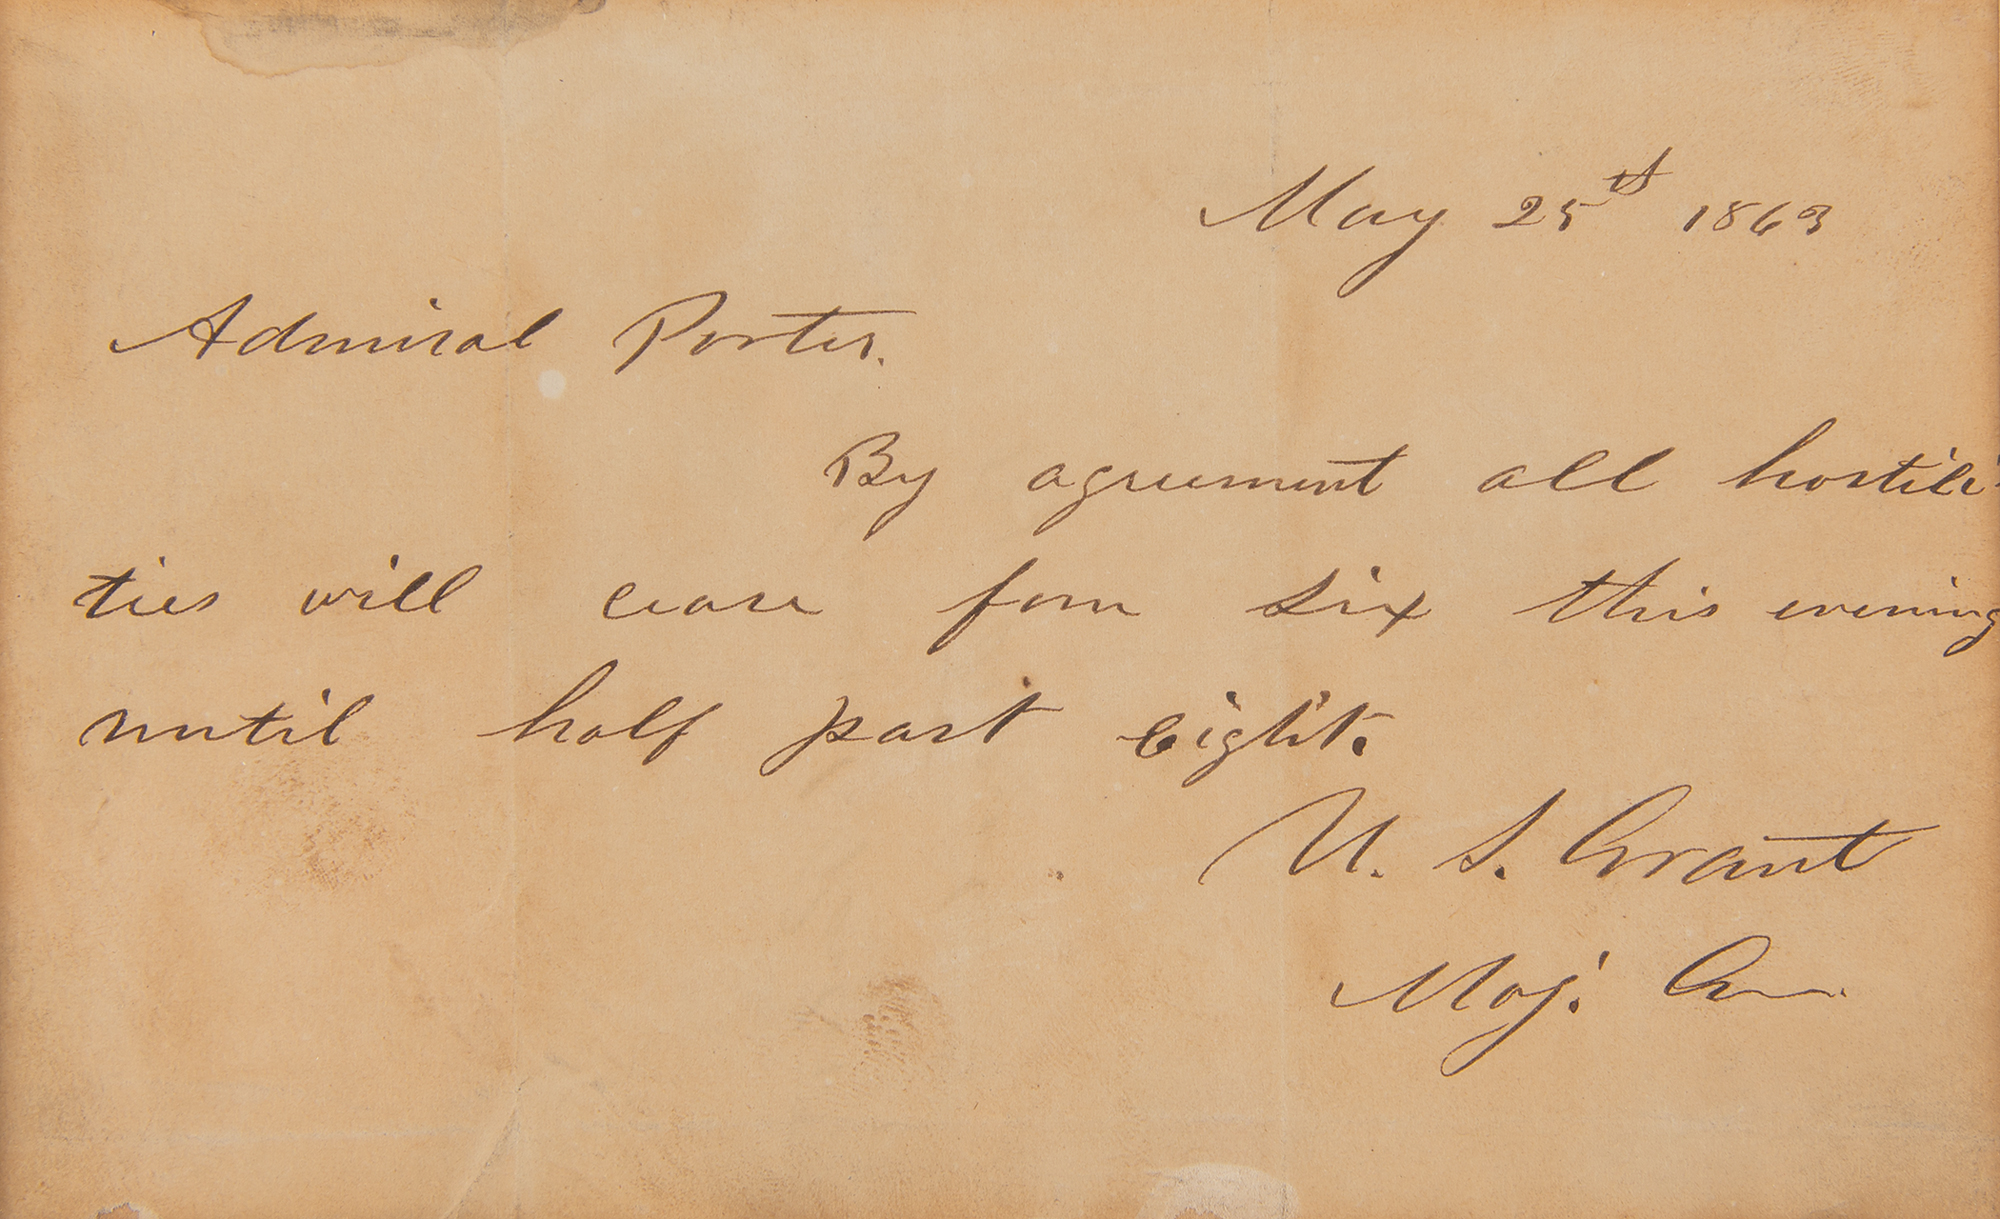 May 25th 1863
Admiral Porter.
By agreement all hostili-
ties will cease fom six this evening
until half past eight.
U. S. Grant
Maj. Gen.